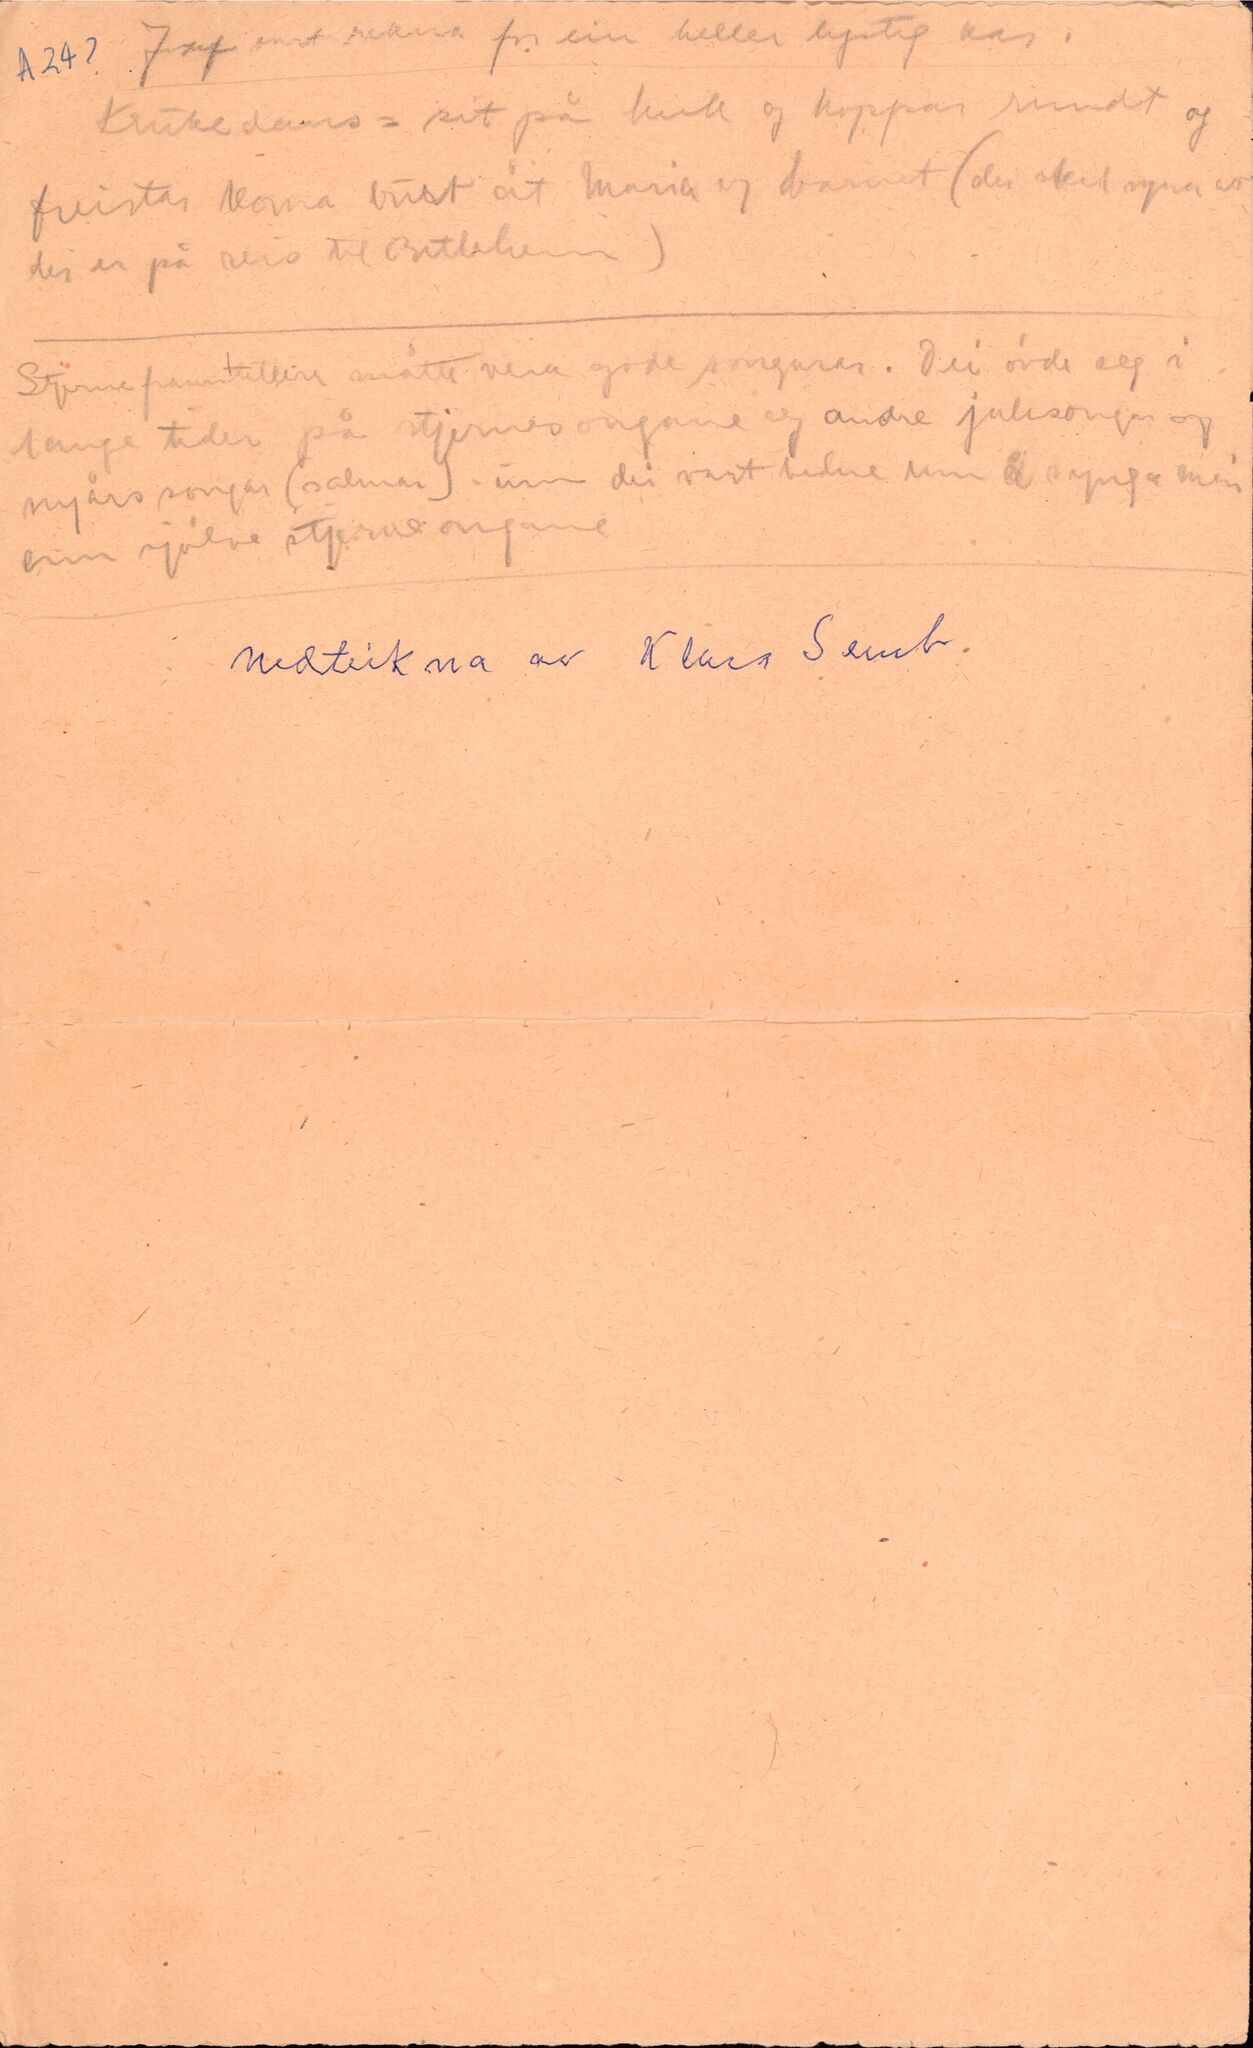 A 24?
Josef vart rekna for ein heller lystig kar.
Krukedans = sit på huk og hoppar rundt og
freistar koma burt åt Maria og barnet (dei skal syna at
dei er på reis til Betlehem)
Stjerneframstellera måtte vera gode songarar. Dei øvde seg i
lange tider på stjernesongane og andre julesongar og
nyårssongar (salmar) um dei vart bedne um å synga meir
enn sjølve stjernesongane
Nedteikna av Klara Semb.